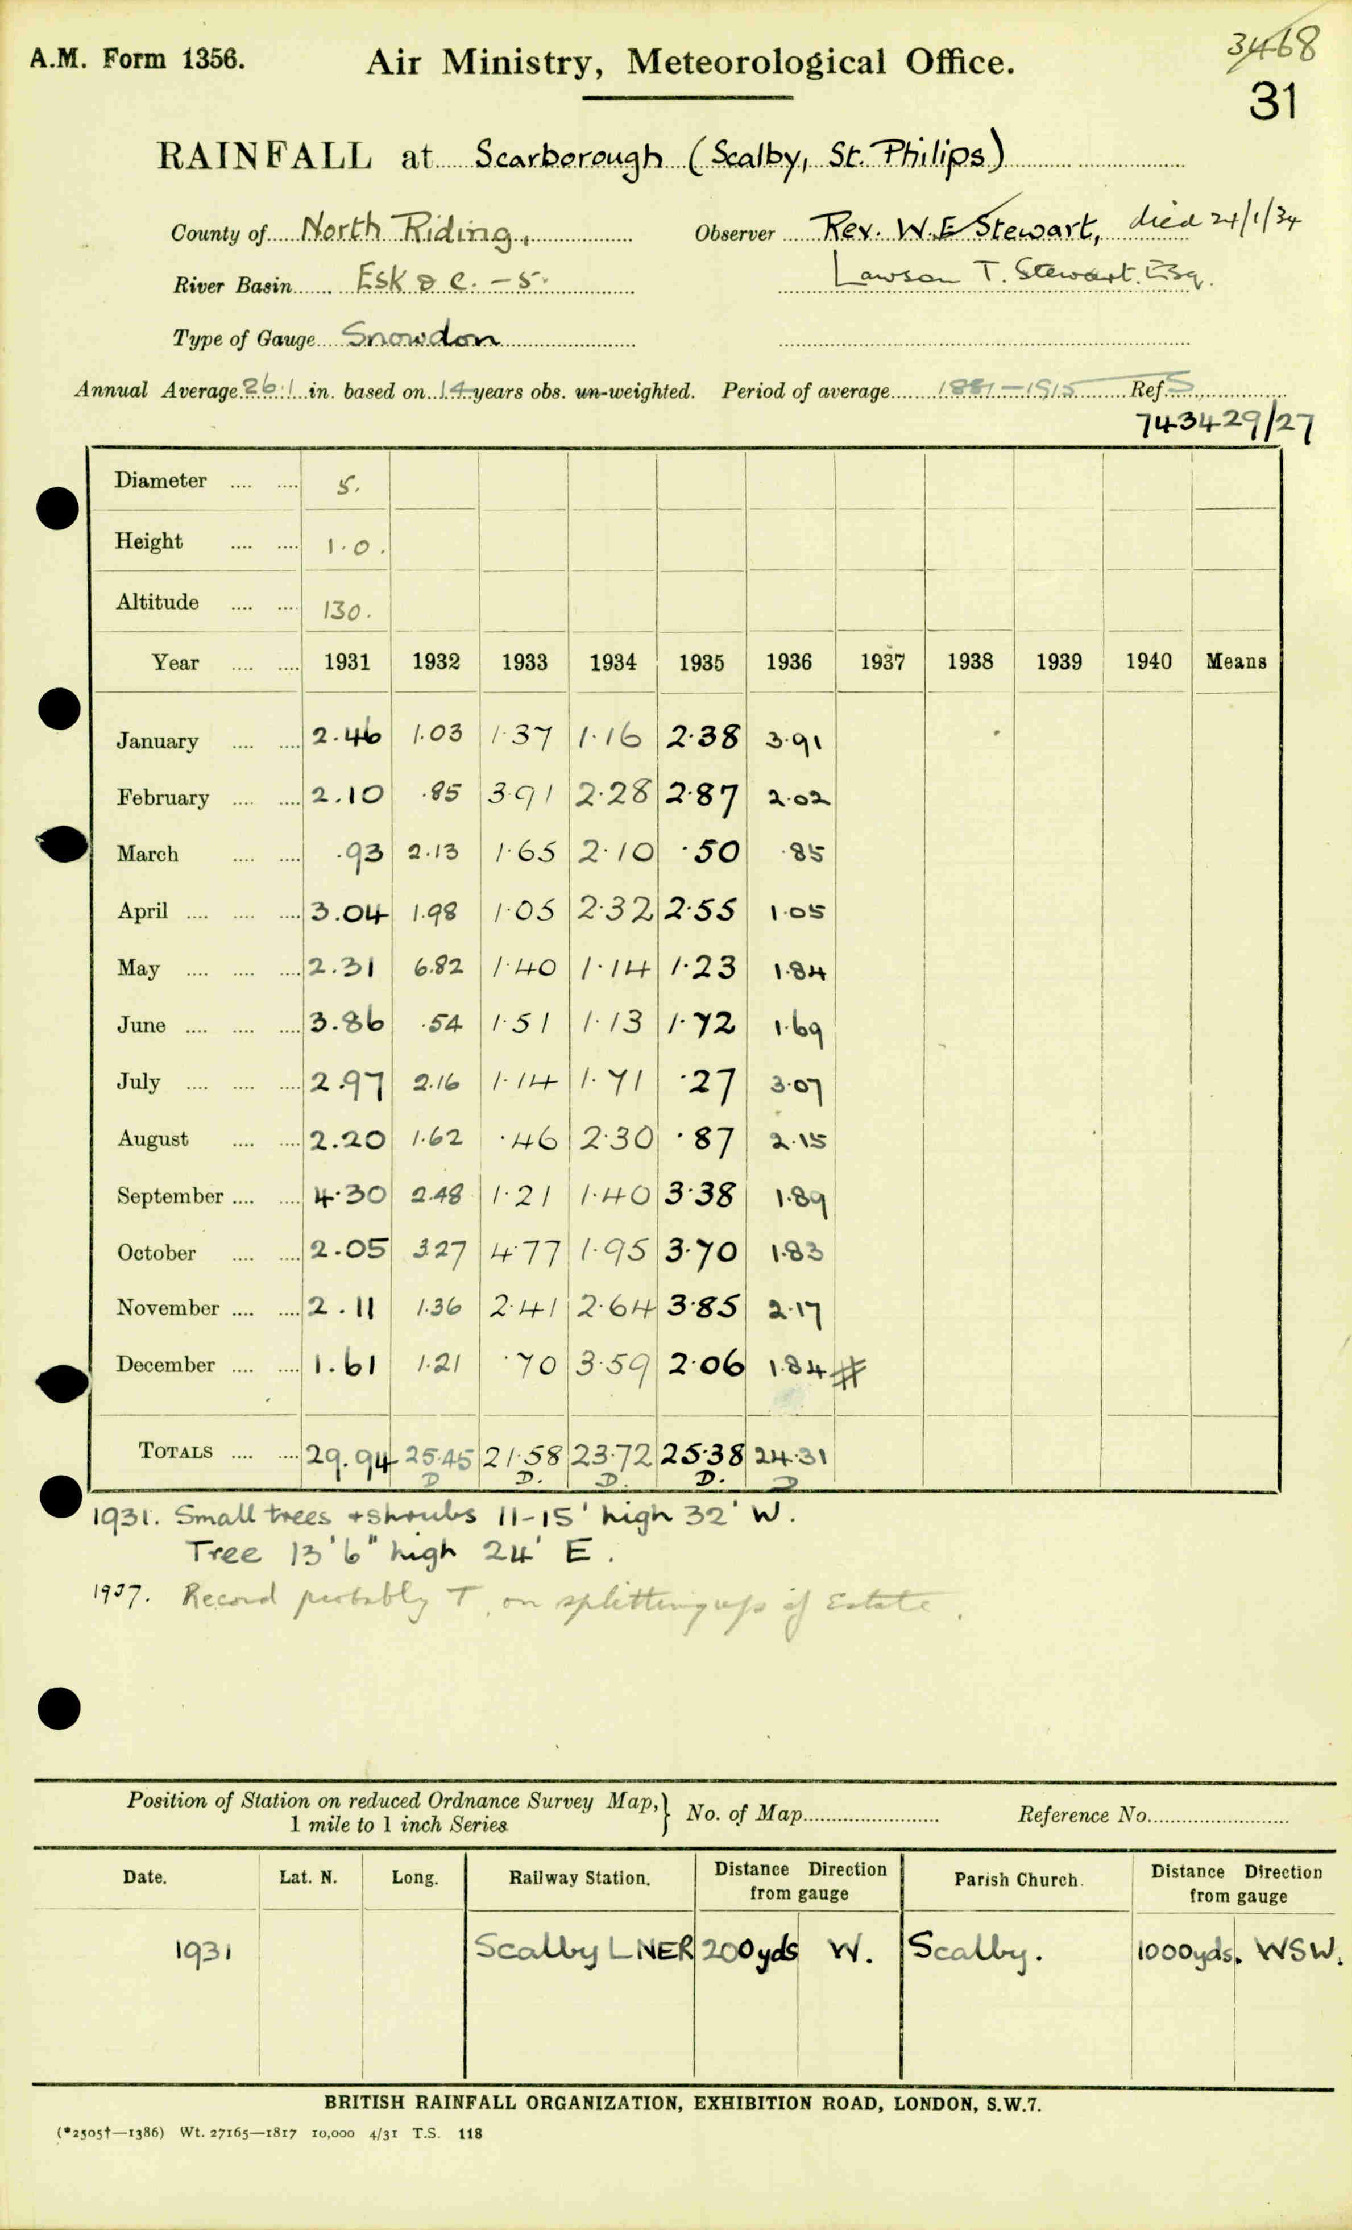 3468
A.M. Form 1356. Air Ministry, Meteorological Office.
31
RAINFALL at Scarborough (Scalby, St. Philips)
County of North Riding, Observer Rev. W.E Stewart, died 24/1/34
River Basin Esk & c. - 5. Lawson T. Stewart. Esq.
Type of Gauge Snowdon
Annual Average 26.1 in. based on 14 years obs. un-weighted. Period of average 1881-1915 Ref. S
743429/27
Diameter .... .... 5.
Height .... .... 1.0.
Altitude .... .... 130.
Year .... .... 1931 1932 1933 1934 1935 1936 1937 1938 1939 1940 Means
January .... .... 2.46 1.03 1.37 1.16 2.38 3.91
February .... .... 2.10 .85 3.91 2.28 2.87 2.02
March .... .... .93 2.13 1.65 2.10 .50 .85
April .... .... .... 3.04 1.98 1.05 2.32 2.55 1.05
May .... .... .... 2.31 6.82 1.40 1.14 1.23 1.84
June .... .... .... 3.86 .54 1.51 1.13 1.72 1.69
July .... .... .... 2.97 2.16 1.14 1.71 .27 3.07
August .... .... 2.20 1.62 .46 2.30 .87 2.15
September .... .... 4.30 2.48 1.21 1.40 3.38 1.89
October .... .... 2.05 3.27 4.77 1.95 3.70 1.83
November .... .... 2.11 1.36 2.41 2.64 3.85 2.17
December .... .... 1.61 1.21 .70 3.59 2.06 1.84 #
TOTALS .... .... 29.94 25.45 21.58 23.72 25.38 24.31
D D. D. D. D
1931. Small trees + shrubs 11-15' high 32' W.
Tree 13'6" high 24' E.
1937. Record probably T, on splitting up of Estate.
Position of Station on reduced Ordnance Survey Map,} No. of Map Reference No.
1 mile to 1 inch Series
Date. Lat. N. Long. Railway Station. Distance Direction from gauge Parish Church. Distance Direction from gauge
1931 Scalby LNER 200yds W. Scalby. 1000yds. WSW.
BRITISH RAINFALL ORGANIZATION, EXHIBITION ROAD, LONDON, S.W.7.
(*2505†—1386) Wt. 27165—1817 10,000 4/31 T.S. 118